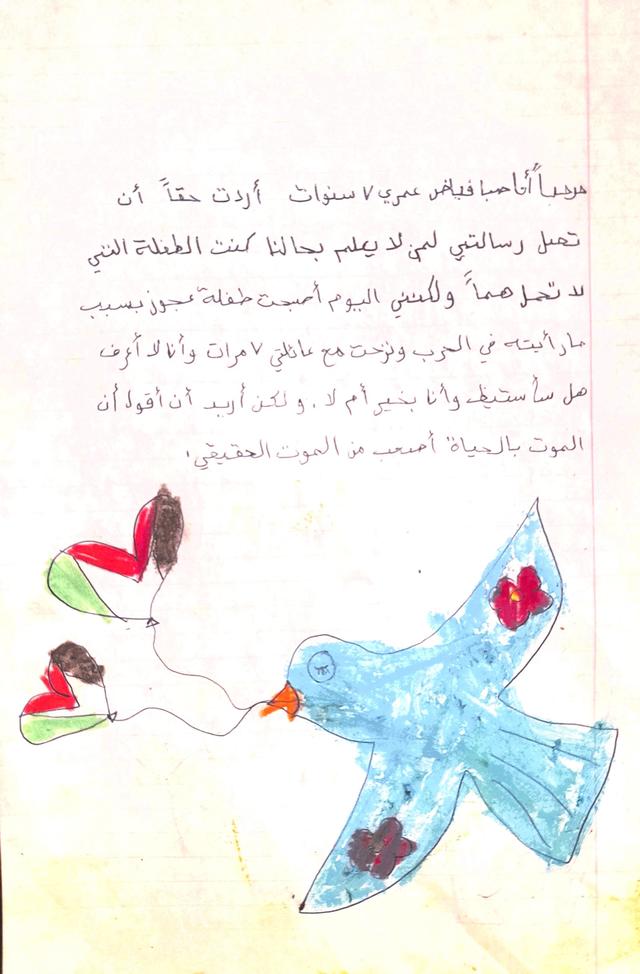 مرحباً أنا صبا فياض عمري ٧ سنوات أردت حقاً أن
تصل رسالتي لمن لا يعلم بحالنا كنت الطفلة التي
لا تحمل هماً ولكنني اليوم أصبحت طفلة عجوز بسبب
ما رأيته في الحرب ونزحت مع عائلتي ٧ مرات وأنا لا أعرف
هل سأستيظ وأنا بخير أم لا. ولكن أريد أن أقول أن
الموت بالحياة أصعب من الموت الحقيقي.